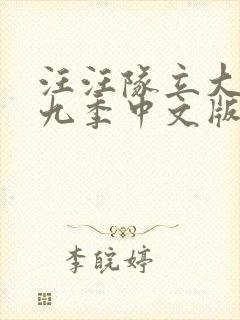 汪汪隊立大
九季中文版
李皖婷